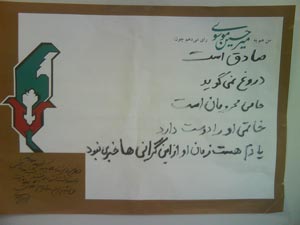 من هم به میرحسین موسوی رای می‌دهم چون
صادق است
دروغ نمی گوید
حامی محرومان است
خاتمی او را دوست دارد
یادم هست زمان او از این گرانی ها خبری نبود